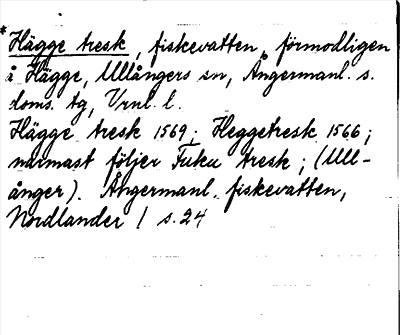 *Hägge träsk, fiskevatten, förmodligen
å Hägge, Ullångers sn, Ångermanl. s.
doms. tg, Vrnl. l.
Hägge tresk 1569; Heggetresk 1566;
närmast följer Fuku tresk; (Ull-
ånger). Ångermanl. fiskevatten,
Nordlander / s. 24